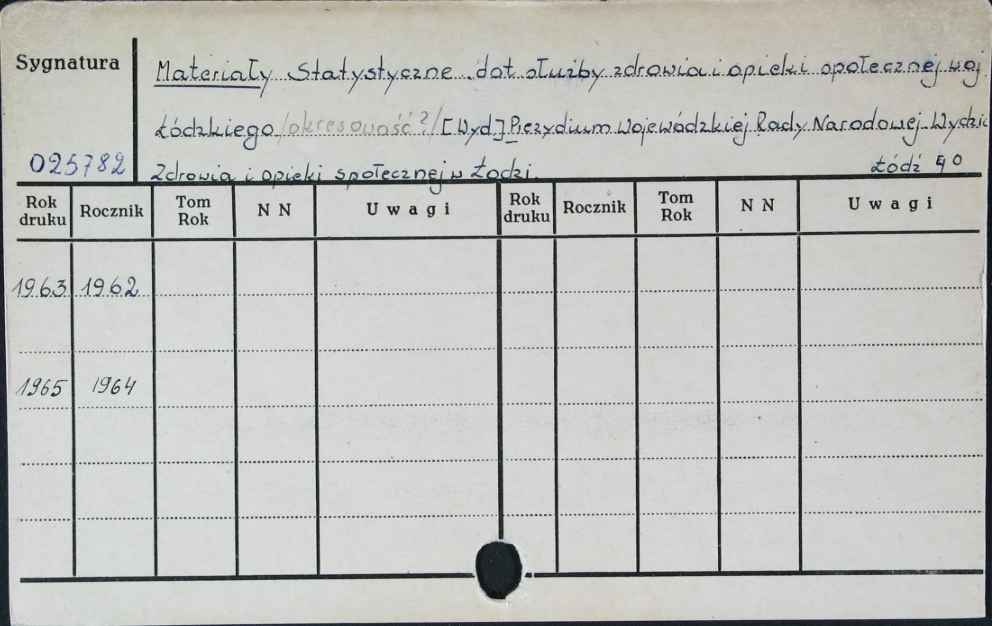 Sygnatura
Materiały Statystyczne dot służby zdrowia i opieki społecznej woj.
Łódzkiego /okresowość?/ [Wyd] Prezydium Wojewódzkiej Rady Narodowej. Wydzia
025782
Zdrowia i opieki społecznej w Łodzi. Łódź 4°
Rok druku Rocznik Tom Rok N N Uwagi Rok druku Rocznik Tom Rok N N Uwagi
1963 1962
1965 1964